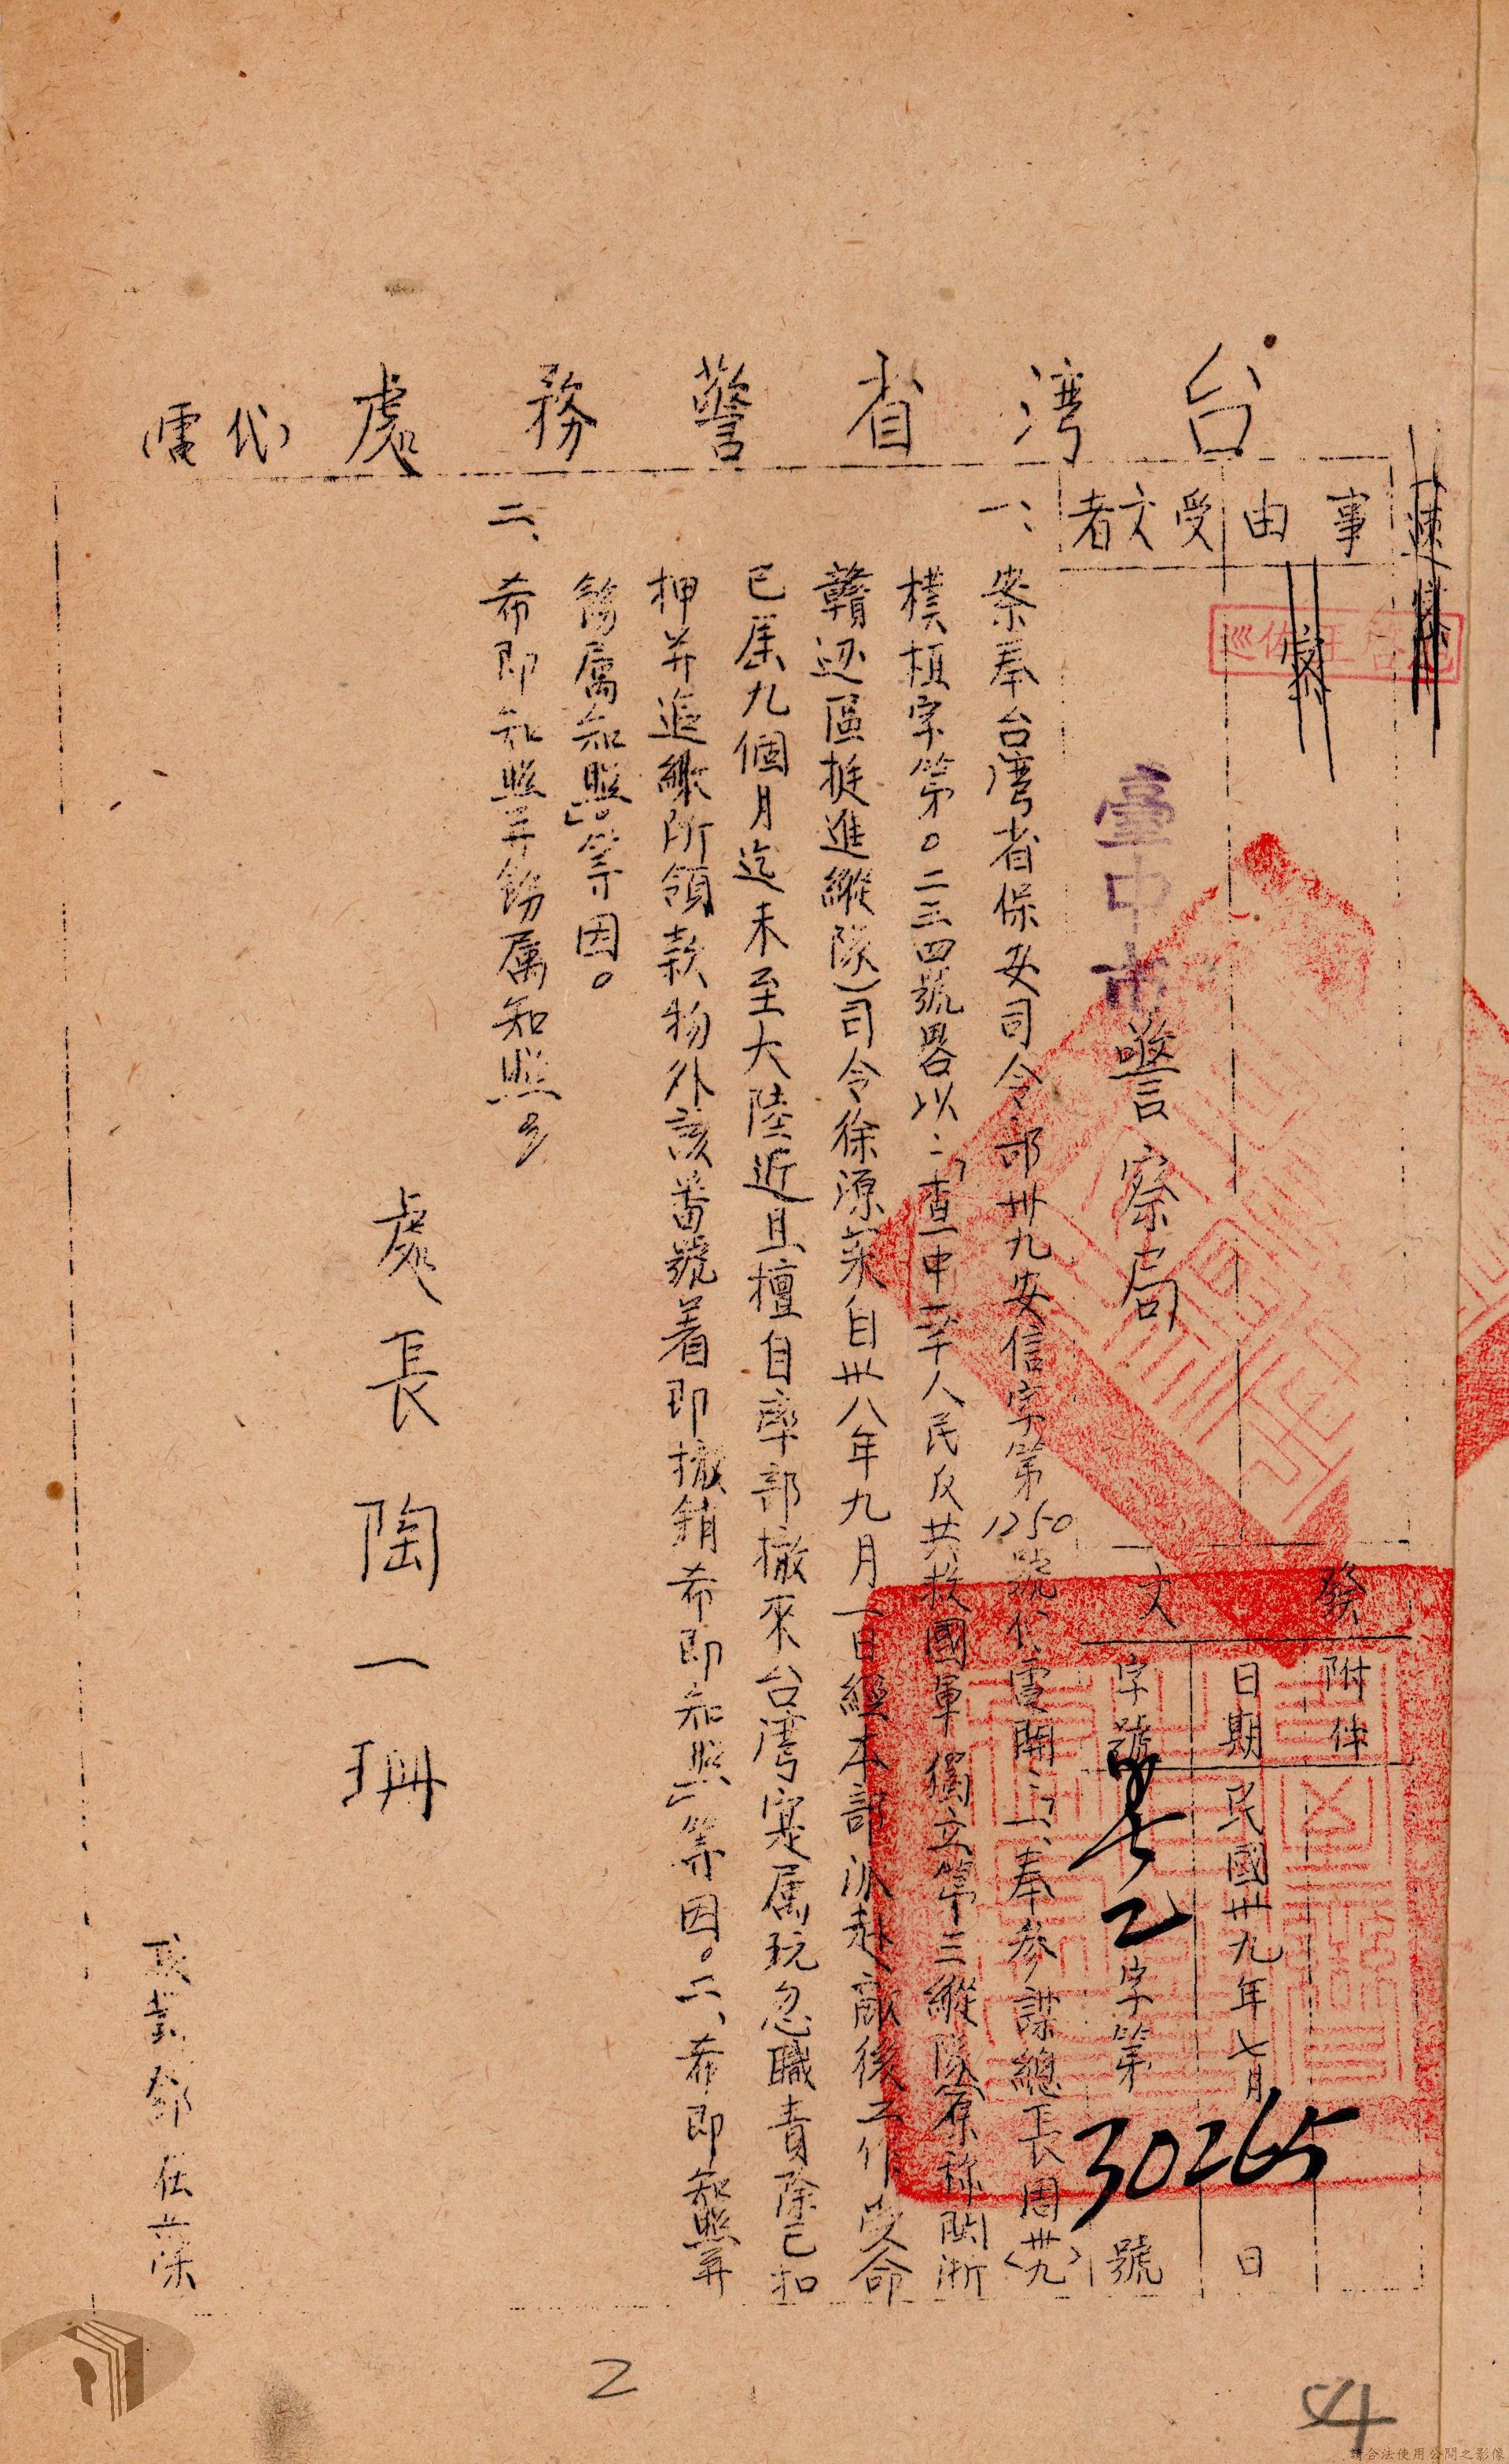 台灣省警務處代電
事由
受文者
臺中市警察局
發文
附件
日期 民國卅九年七月 日
字號 乙字第30265號
一、案奉台灣省保安司令部卅九安信字第1250號代電開：「一、奉參謀總長周〈卅九〉
樸植字第〇二三四號畧以：「查中華人民反共救國軍獨立第三縱隊(原称閩浙
贛边區挺進縱隊)司令徐源泉自卅八年九月一日經本部派赴敵後工作受命
已屆九個月迄未至大陸近且擅自率部撤來台灣寔属玩忽職責除已扣
押并追繳所領款物外該番號着即撤銷希即知照」等因。二、希即知照并
飭屬知照」。等因。
二、希即知照并飭屬知照
處長陶一珊
2
4
請合法使用公開之影像